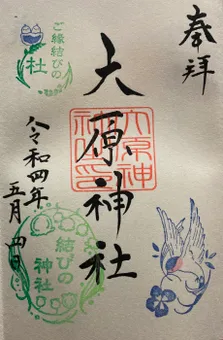 奉拝
大原神社
大原神社印
ご縁結びの
社
令和四年
五月四日
結びの
神社